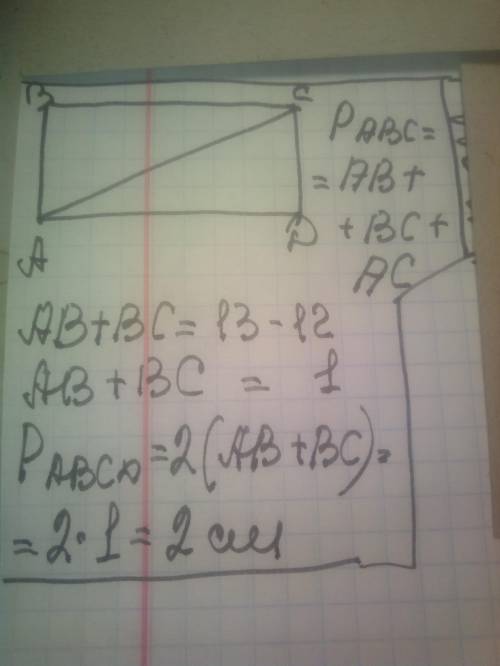 B C
A D
P ABC =
= AB +
+ BC +
AC
AB + BC = 13 - 12
AB + BC = 1
P ABCD = 2(AB + BC) =
= 2 · 1 = 2 см